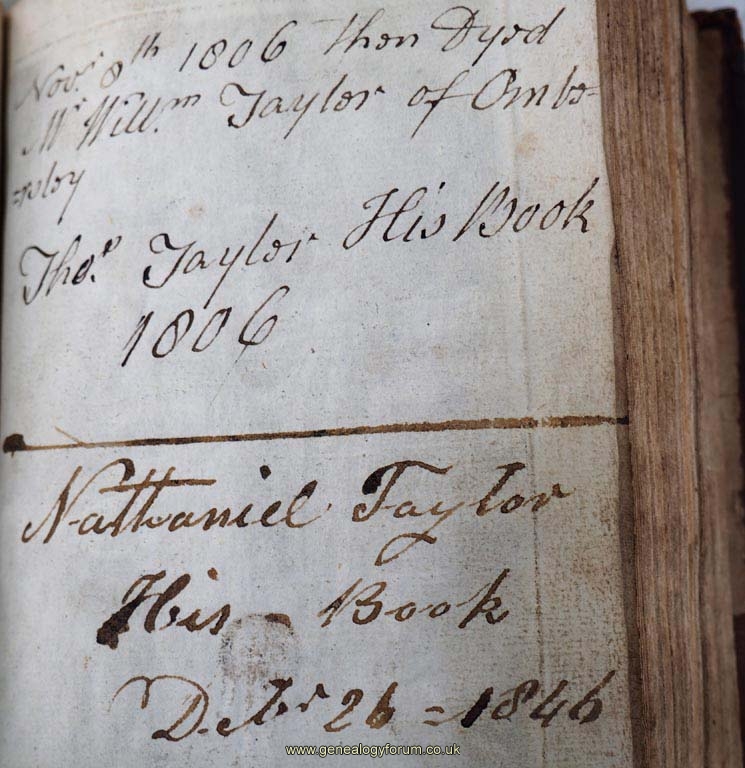 Novr. 8th 1806 then Dyed
Mr Willm. Taylor of Ombe=
=rsley
Thos. Taylor His Book
1806
Nathaniel Taylor
His - Book
Decbr 26 = 1846
www.genealogyforum.co.uk